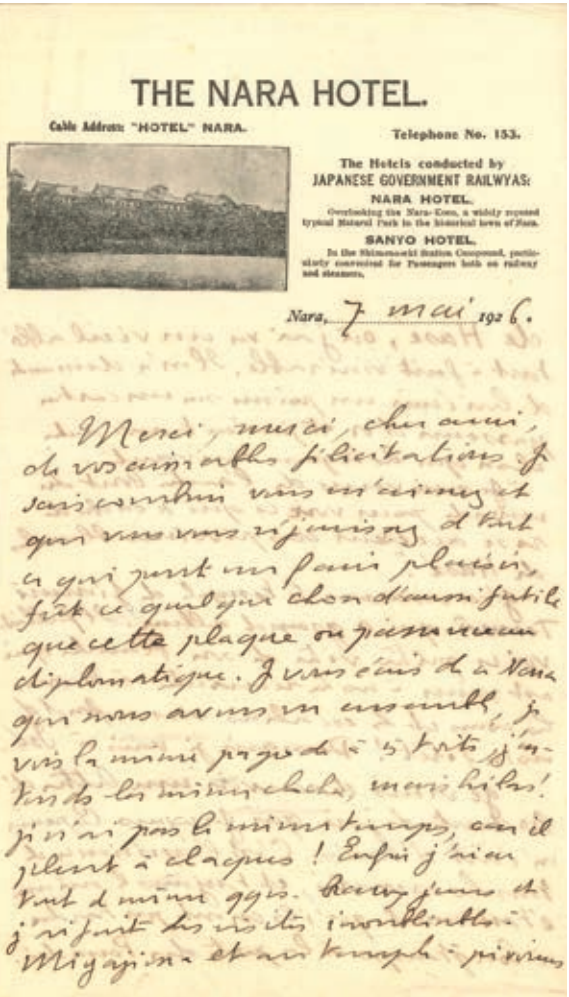 THE NARA HOTEL.
Cable Address: "HOTEL" NARA.
Telephone No. 153.
The Hotels conducted by
JAPANESE GOVERNMENT RAILWYAS:
NARA HOTEL.
Overlooking the Nara-Koen, a widely reputed
typical Natural Park in the historical town of Nara.
SANYO HOTEL.
In the Shimonoseki Station Compound, partic-
ularly convenient for Passengers both on railway
and steamers.
Nara, 7 mai 1926.
Merci, merci, cher ami,
de vos aimables félicitations. Je
sais combien vous m'aimez et
que vous vous réjouissez d tout
ce qui peut me faire plaisir,
fût ce quelque chose d'aussi futile
que cette plaque ou
diplomatique. Je vous écris de ce Nara
que nous avons vu ensemble, je
vois la même pagode à 5 toits, j'en-
tends les mêmes mais hélas!
je n'ai pas le même temps, car il
pleut à claques ! Enfin j'ai eu
tout d même qqs. beaux jours et
j'ai fait des visites inoubliables :
Miyajima et au temple